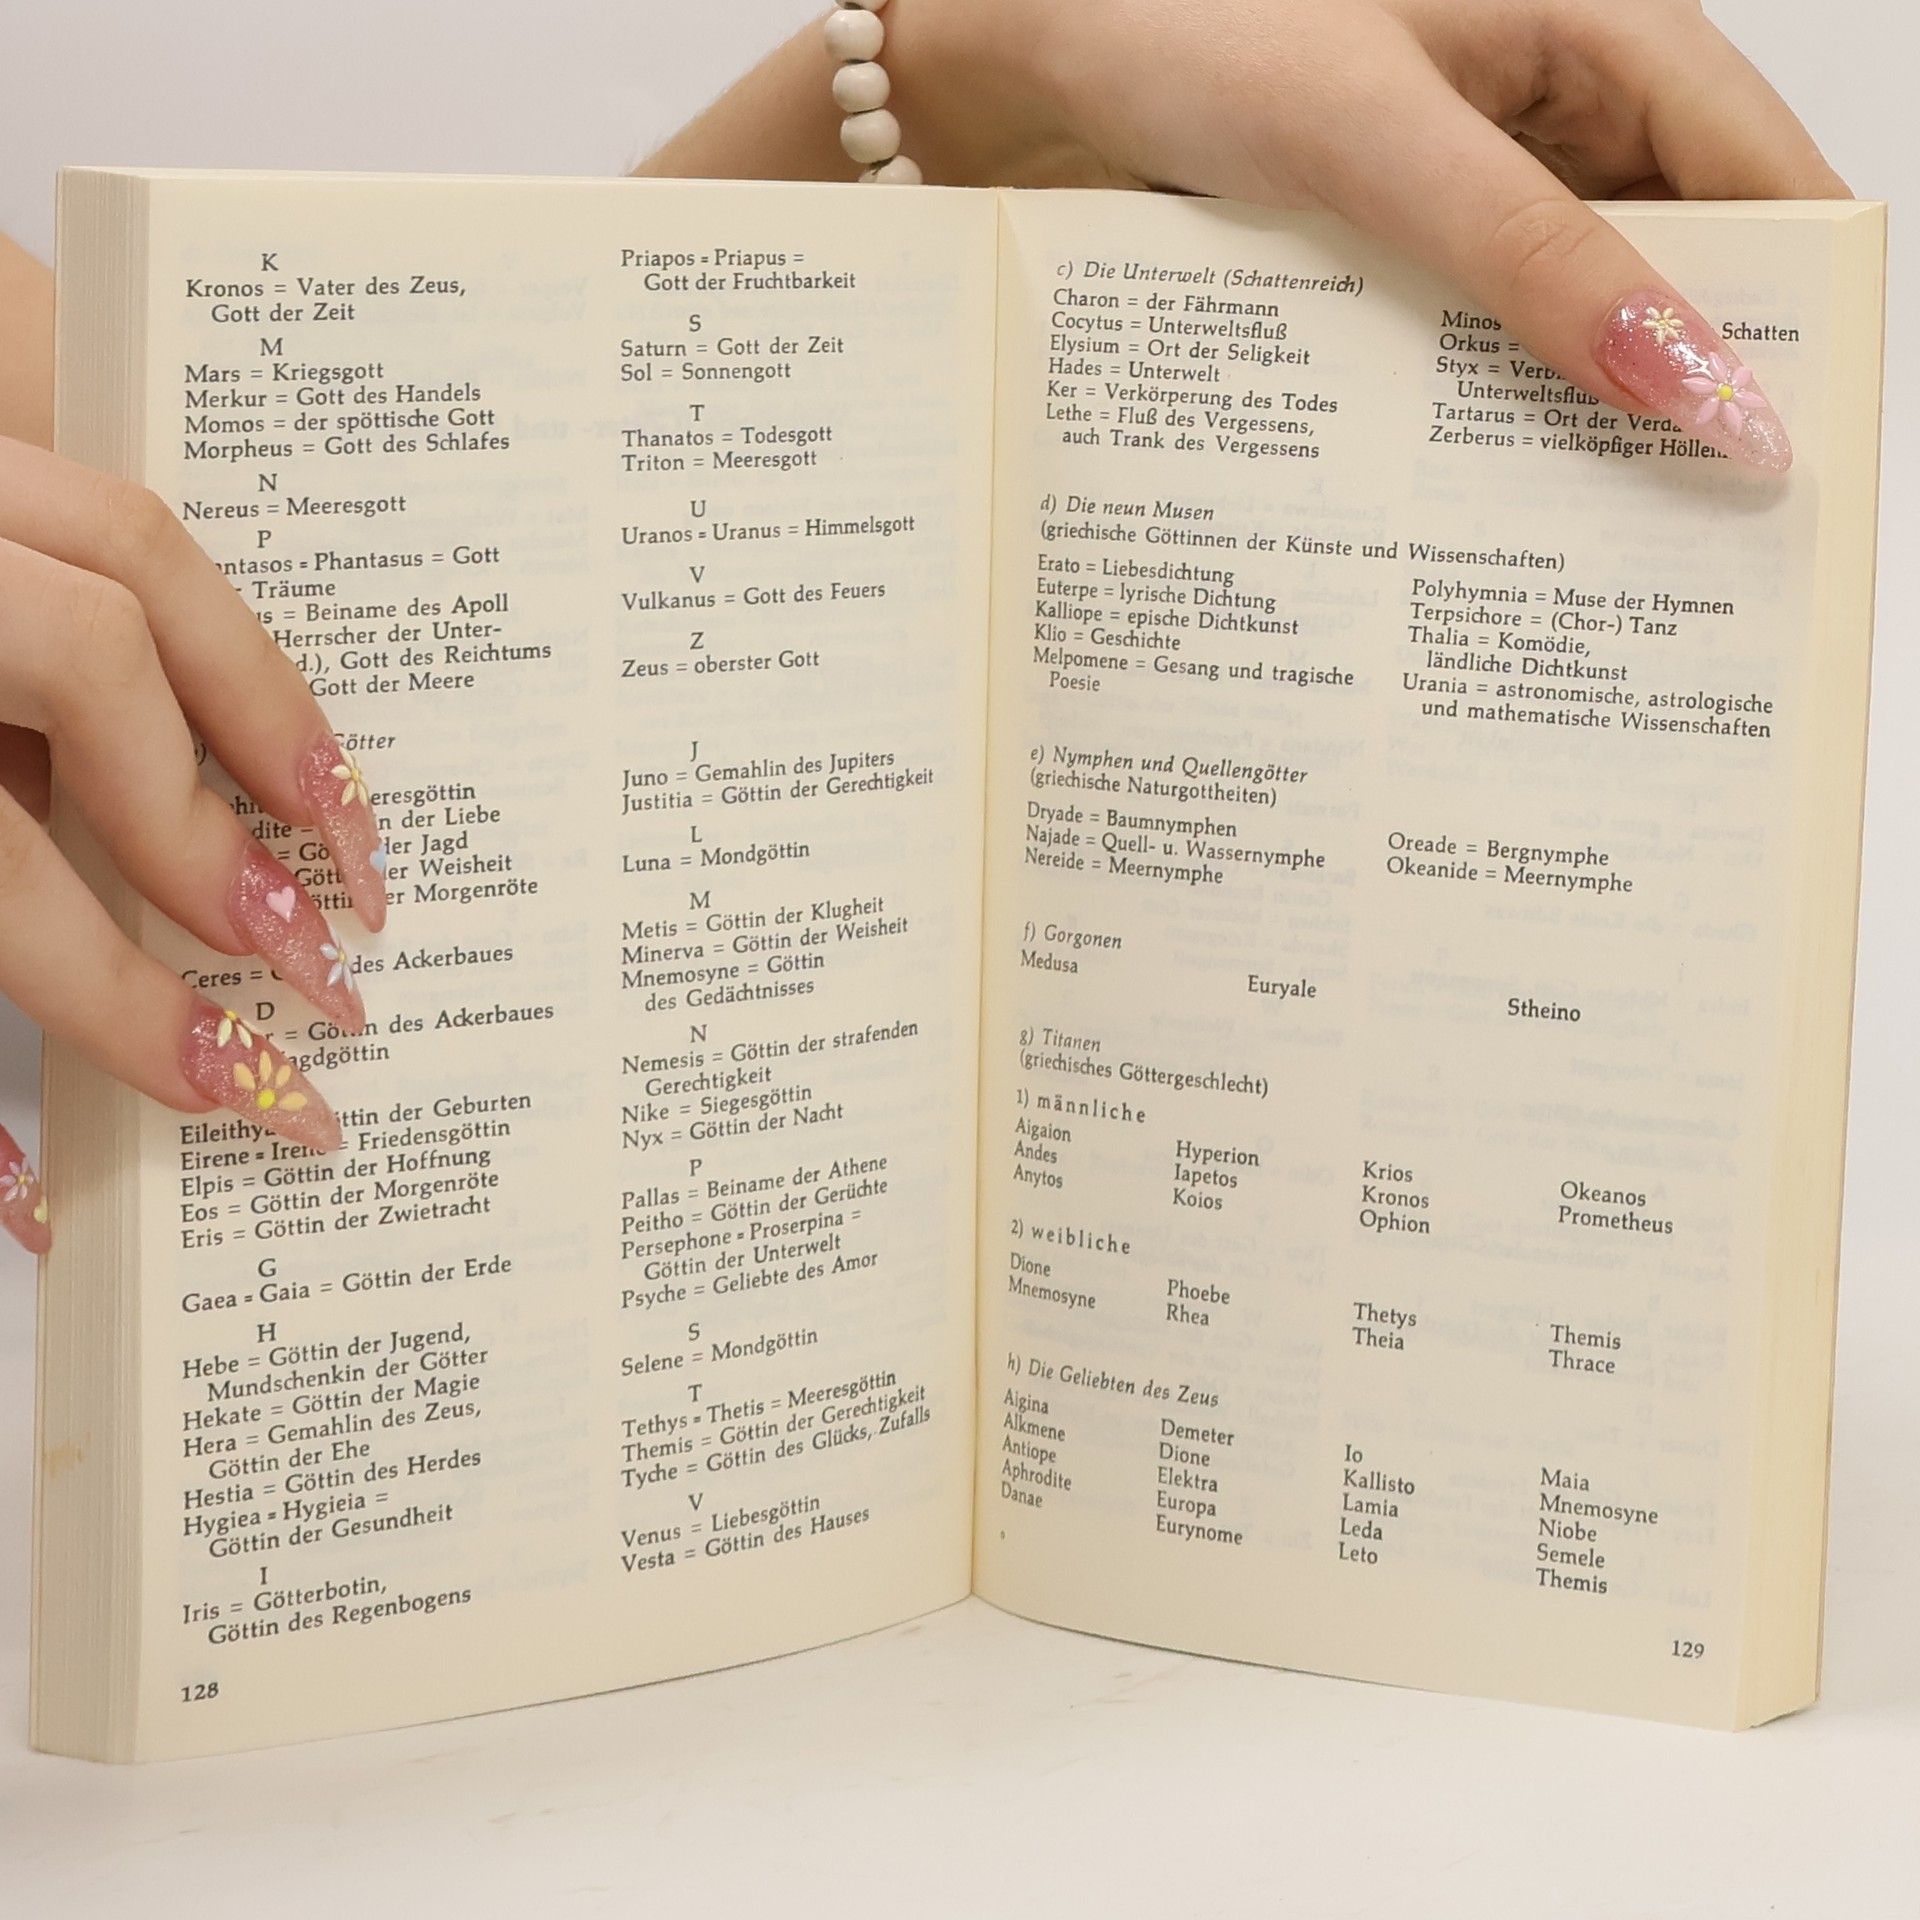 K
Kronos = Vater des Zeus,
Gott der Zeit
M
Mars = Kriegsgott
Merkur = Gott des Handels
Momos = der spöttische Gott
Morpheus = Gott des Schlafes
N
Nereus = Meeresgott
P
= Phantasus = Gott
Träume
= Beiname des Apoll
Herrscher der Unter-
Gott des Reichtums
Gott der Meere
Götter
der Liebe
der Jagd
der Weisheit
der Morgenröte
Ceres = des Ackerbaues
D
= Göttin des Ackerbaues
der Geburten
Eirene = = Friedensgöttin
Elpis = Göttin der Hoffnung
Eos = Göttin der Morgenröte
Eris = Göttin der Zwietracht
G
Gaea = Gaia = Göttin der Erde
H
Hebe = Göttin der Jugend,
Mundschenkin der Götter
Hekate = Göttin der Magie
Hera = Gemahlin des Zeus,
Göttin der Ehe
Hestia = Göttin des Herdes
Hygiea = Hygieia =
Göttin der Gesundheit
I
Iris = Götterbotin,
Göttin des Regenbogens
128
Priapos = Priapus =
Gott der Fruchtbarkeit
S
Saturn = Gott der Zeit
Sol = Sonnengott
T
Thanatos = Todesgott
Triton = Meeresgott
U
Uranos = Uranus = Himmelsgott
V
Vulkanus = Gott des Feuers
Z
Zeus = oberster Gott
J
Juno = Gemahlin des Jupiters
Justitia = Göttin der Gerechtigkeit
L
Luna = Mondgöttin
M
Metis = Göttin der Klugheit
Minerva = Göttin der Weisheit
Mnemosyne = Göttin
des Gedächtnisses
N
Nemesis = Göttin der strafenden
Gerechtigkeit
Nike = Siegesgöttin
Nyx = Göttin der Nacht
P
Pallas = Beiname der Athene
Peitho = Göttin der Gerüchte
Persephone = Proserpina =
Göttin der Unterwelt
Psyche = Geliebte des Amor
S
Selene = Mondgöttin
T
Tethys = Thetis = Meeresgöttin
Themis = Göttin der Gerechtigkeit
Tyche = Göttin des Glücks, Zufalls
V
Venus = Liebesgöttin
Vesta = Göttin des Hauses
c) Die Unterwelt (Schattenreich)
Charon = der Fährmann
Cocytus = Unterweltsfluß
Elysium = Ort der Seligkeit
Hades = Unterwelt
Ker = Verkörperung des Todes
Lethe = Fluß des Vergessens,
auch Trank des Vergessens
Minos Schatten
Orkus =
Styx =
Unterweltsfluß
Tartarus = Ort der
Zerberus = vielköpfiger
d) Die neun Musen
(griechische Göttinnen der Künste und Wissenschaften)
Erato = Liebesdichtung
Euterpe = lyrische Dichtung
Kalliope = epische Dichtkunst
Klio = Geschichte
Melpomene = Gesang und tragische
Poesie
Polyhymnia = Muse der Hymnen
Terpsichore = (Chor-) Tanz
Thalia = Komödie,
ländliche Dichtkunst
Urania = astronomische, astrologische
und mathematische Wissenschaften
e) Nymphen und Quellengötter
(griechische Naturgottheiten)
Dryade = Baumnymphen
Najade = Quell- u. Wassernymphe
Nereide = Meernymphe
Oreade = Bergnymphe
Okeanide = Meernymphe
f) Gorgonen
Medusa Euryale Stheino
g) Titanen
(griechisches Göttergeschlecht)
1) männliche
Aigaion Hyperion Krios Okeanos
Andes Iapetos Kronos Prometheus
Anytos Koios Ophion
2) weibliche
Dione Phoebe Thetys Themis
Mnemosyne Rhea Theia Thrace
h) Die Geliebten des Zeus
Aigina Demeter Io Maia
Alkmene Dione Kallisto Mnemosyne
Antiope Elektra Lamia Niobe
Aphrodite Europa Leda Semele
Danae Eurynome Leto Themis
129